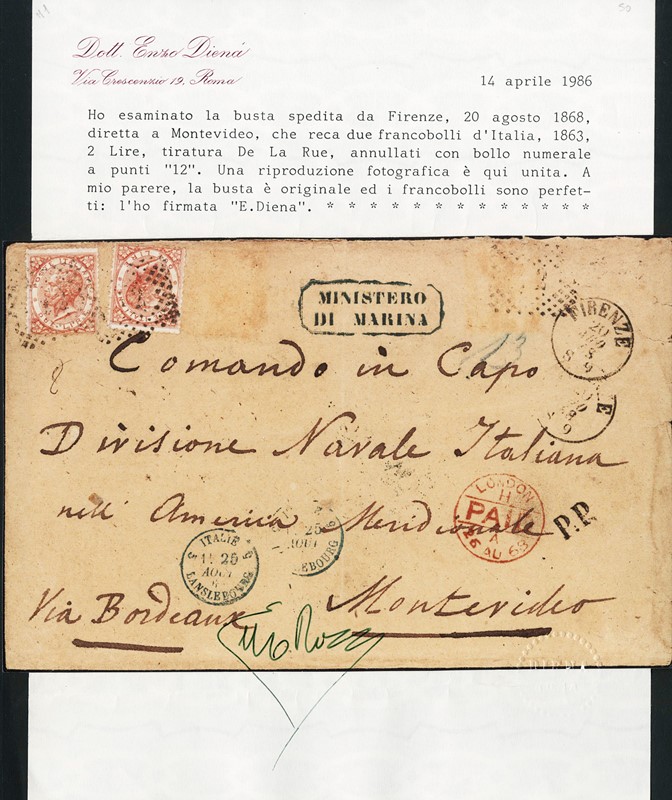 Dott. Enzo Diena
Via Crescenzio 19, Roma
14 aprile 1986
Ho esaminato la busta spedita da Firenze, 20 agosto 1868,
diretta a Montevideo, che reca due francobolli d'Italia, 1863,
2 Lire, tiratura De La Rue, annullati con bollo numerale
a punti "12". Una riproduzione fotografica è qui unita. A
mio parere, la busta è originale ed i francobolli sono perfet-
ti: l'ho firmata "E.Diena". * * * * * * * * * * * * * *
MINISTERO
DI MARINA
FIRENZE
20
13
Comando in Capo
Divisione Navale Italiana
nell' America Meridionale
LONDON
H
PAID
A
26 AU 68
P.P.
ITALIE
25
AOUT
LANSLEBOURG
25
AOUT
EBOURG
Via Bordeaux
Montevideo